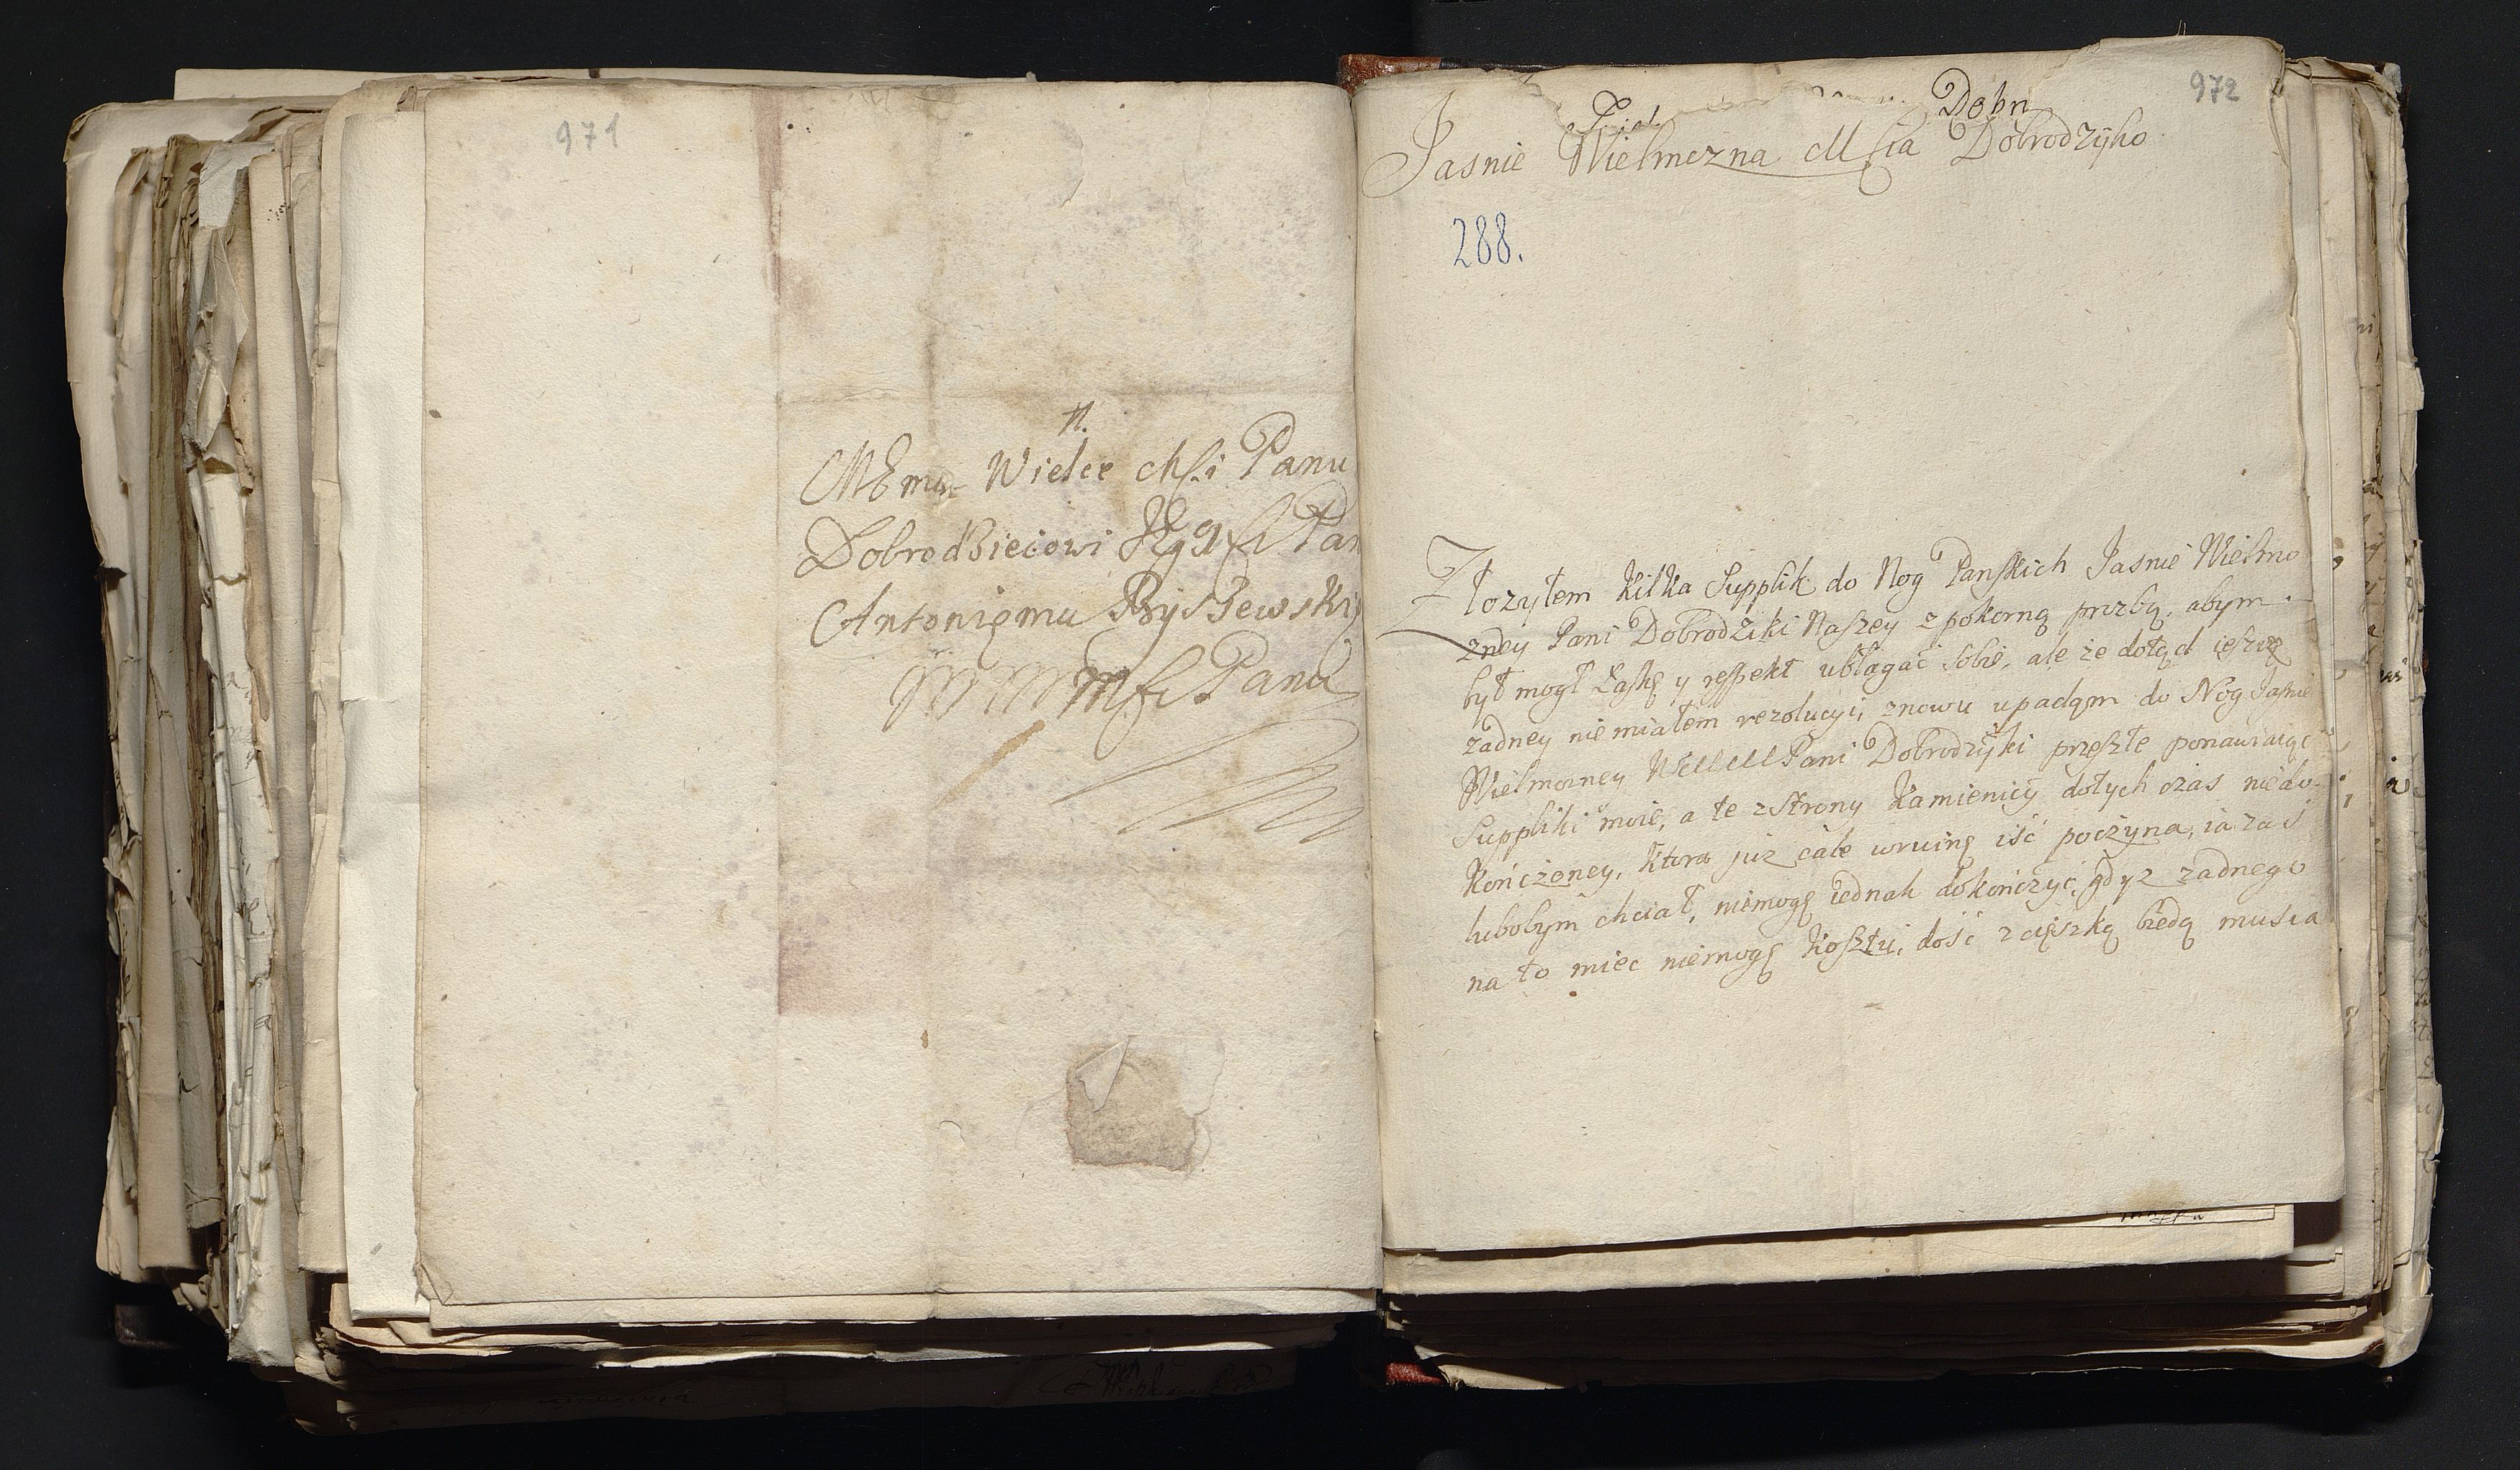 971
MEmu Wielce Msci Panu
Dobrodzieiowi Panu
Antoniemu
Panu
972
Dobr
Jasnie Wielmozna Mscia Dobrodzyko
288.
Złozyłem kilka Supplik do Nog Panskich Jasnie Wielmo
zney Pani Dobrodziki Naszey z pokorną prozbą, abym
był mogł Łaskę y respekt ubłagać sobie, ale że dotąd ieszcze
zadney nie miałem rezolucyi, znowu upadąm do Nog Jasnie
Wielmozney Pani Dobrodzijki przeszłe ponawiaiąc
Suppliki moie, a te z strony kamienicy dotych czas niedo-
kończoney, ktora już cale wruinę iść poczyna, ia zaś
lubobym chciał, niemogę iednak dokończyć, gdyz zadnego
na to miec niemogę kosztu, dość z cięszką biedą musia
mappa